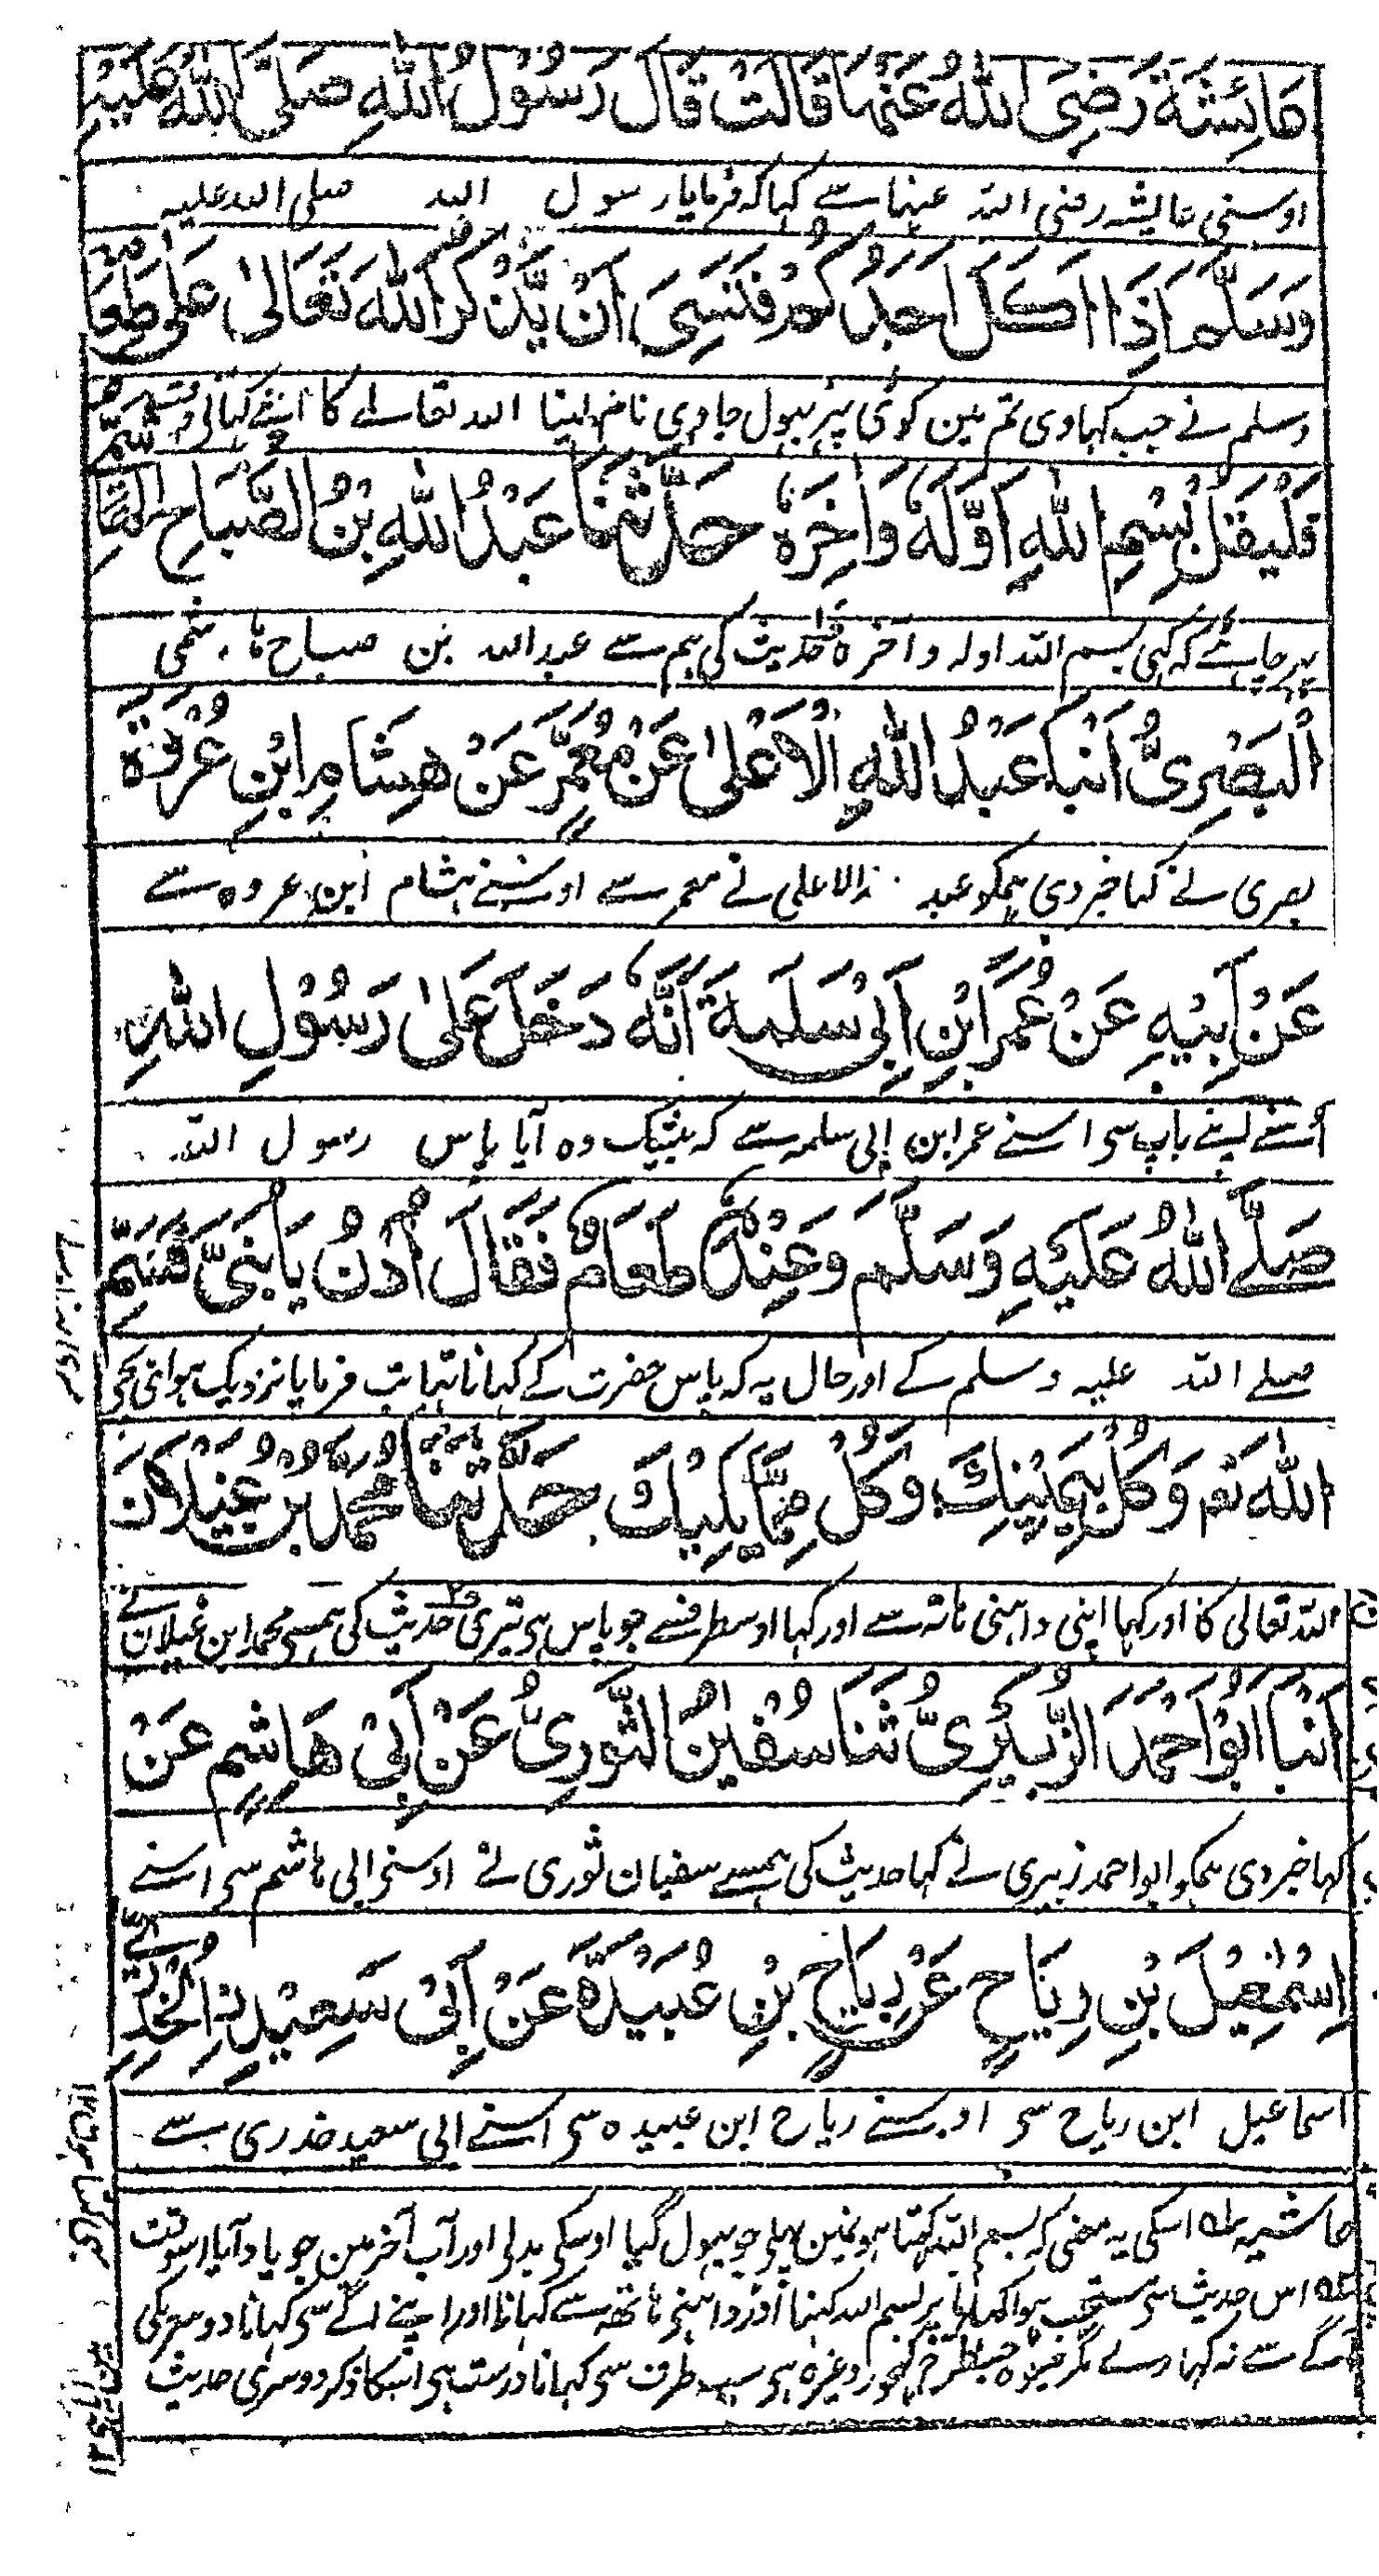 عَائِشَةَ رَضِيَ اللهُ عَنْهَا قَالَتْ قَالَ رَسُوْلُ اللهِ صَلَّى اللهُ عَلَيْهِ
اوسنی عایشہ رضی اللہ عنہا سے کہا کہ فرمایا رسول اللہ صلی اللہ علیہ
وَسَلَّمَ اِذَا اَكَلَ اَحَدُكُمْ فَنَسِيَ اَنْ يَّذْكُرَ اللهَ تَعَالىٰ عَلىٰ طَعَامِهِ
وسلم نے جب کہاوی تم مین کوئی پہر بہول جاوی نام لینا اللہ تعالے کا اپنے کہانی
فَلْيَقُلْ بِسْمِ اللهِ اَوَّلَهٗ وَاٰخِرَهٗ حَدَّثَنَا عَبْدُ اللهِ بْنُ الصَّبَّاحِ
پہر چاہئے کہ کہی بسم اللہ اولہ و اخرہ حدیث کی ہم سے عبد اللہ بن صباح ہاشمی
الْبَصْرِيُّ اَنْبَا عَبْدُ اللهِ الْاَعْلىٰ عَنْ مُعَمَّرٍ عَنْ هِشَامِ ابْنِ عُرْوَةَ
بصری نے کہا خبر دی ہمکو عبد الاعلی نے معمر سے اوسنے ہشام ابن عروہ سے
عَنْ اَبِيْهِ عَنْ عُمَرَ ابْنِ اَبِيْ سَلَمَةَ اَنَّهٗ دَخَلَ عَلىٰ رَسُوْلِ اللهِ
اُسنے اپنے باپ سی اسنے عمر ابن ابی سلمہ سے کہ بیشک وہ آیا پاس رسول اللہ
صَلَّے اللهُ عَلَيْهِ وَسَلَّمَ وَعِنْدَهٗ طَعَامٌ فَقَالَ اُدْنُ يَا بُنَيَّ فَسَمِّ
صلے اللہ علیہ وسلم کے اور حال یہ کہ پاس حضرت کے کہانا تہا تب فرمایا نزدیک ہو ای بچی
اللهَ تَعَ وَكُلْ بِيَمِيْنِكَ وَكُلْ مِمَّا يَلِيْكَ حَدَّثَنَا مُحَمَّدُ بْنُ غَيْلَانَ
اللہ تعالی کا اور کہا اپنی داہنی ہاتہ سے اور کہا اوسطرفسے جو پاس ہی تیری حدیث کی ہمسی محمد ابن غیلان نے
اَنْبَا اَبُوْ اَحْمَدَ الزُّبَيْرِيُّ ثَنَا سُفْيٰنُ الثَّوْرِيُّ عَنْ اَبِيْ هَاشِمٍ عَنْ
کہا خبر دی ہمکو ابو احمد زبیری نے کہا حدیث کی ہمسے سفیان ثوری نے اوسنی ابی ہاشم سی اسنے
اِسْمٰعِيْلَ بْنِ رِيَاحٍ عَنْ رِيَاحِ بْنِ عُبَيْدَةَ عَنْ اَبِيْ سَعِيْدِنِ الْخُدْرِيِّ
اسماعیل ابن ریاح سی اوسنے ریاح ابن عبیدہ سی اسنے ابی سعید خدری سے
حاشیہ ۱ اسکی یہ معنی کہ بسم اللہ کہتا ہون مین پہلی جو بہول گیا اوسکی بدلی اور آب آخر مین جو یاد آیا اسوقت
۲ اس حدیث سی مستحب ہوا کہانا پر بسم اللہ کہنا اور داہنی ہاتھ سے کہانا اور اپنے اگے سی کہانا دوسریکی
اگے سے نہ کہاوے مگر میوہ خرما کہجور وغیرہ ہی سب طرف سی کہانا درست ہی اسکا ذکر دوسری حدیث